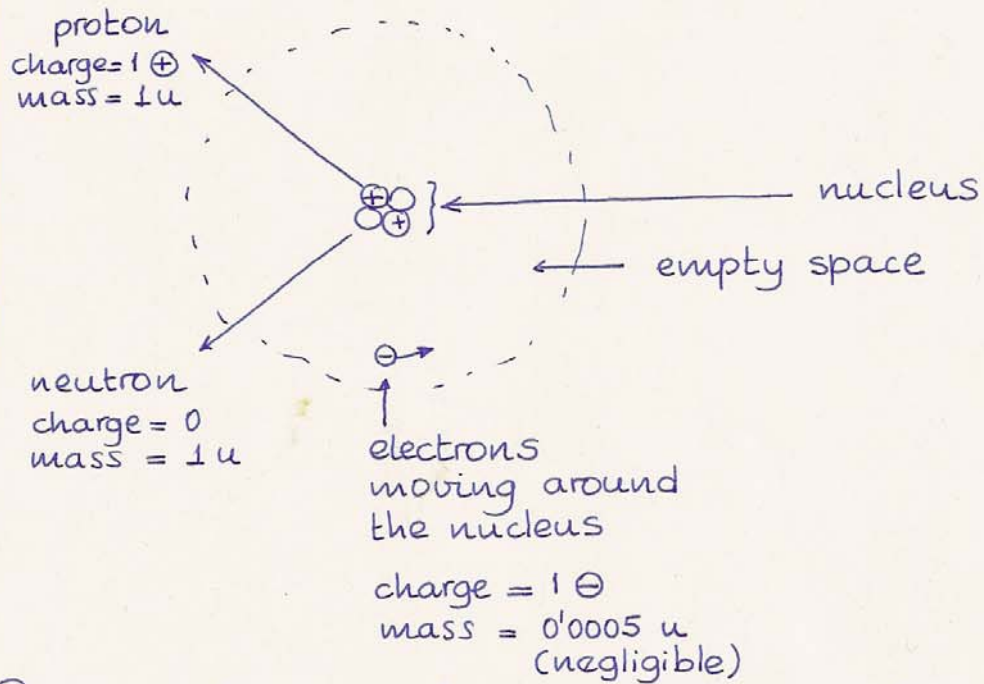 proton
charge = 1 ⊕
mass = 1u
nucleus
empty space
neutron
charge = 0
mass = 1u
electrons
moving around
the nucleus
charge = 1 ⊖
mass = 0'0005 u
(negligible)